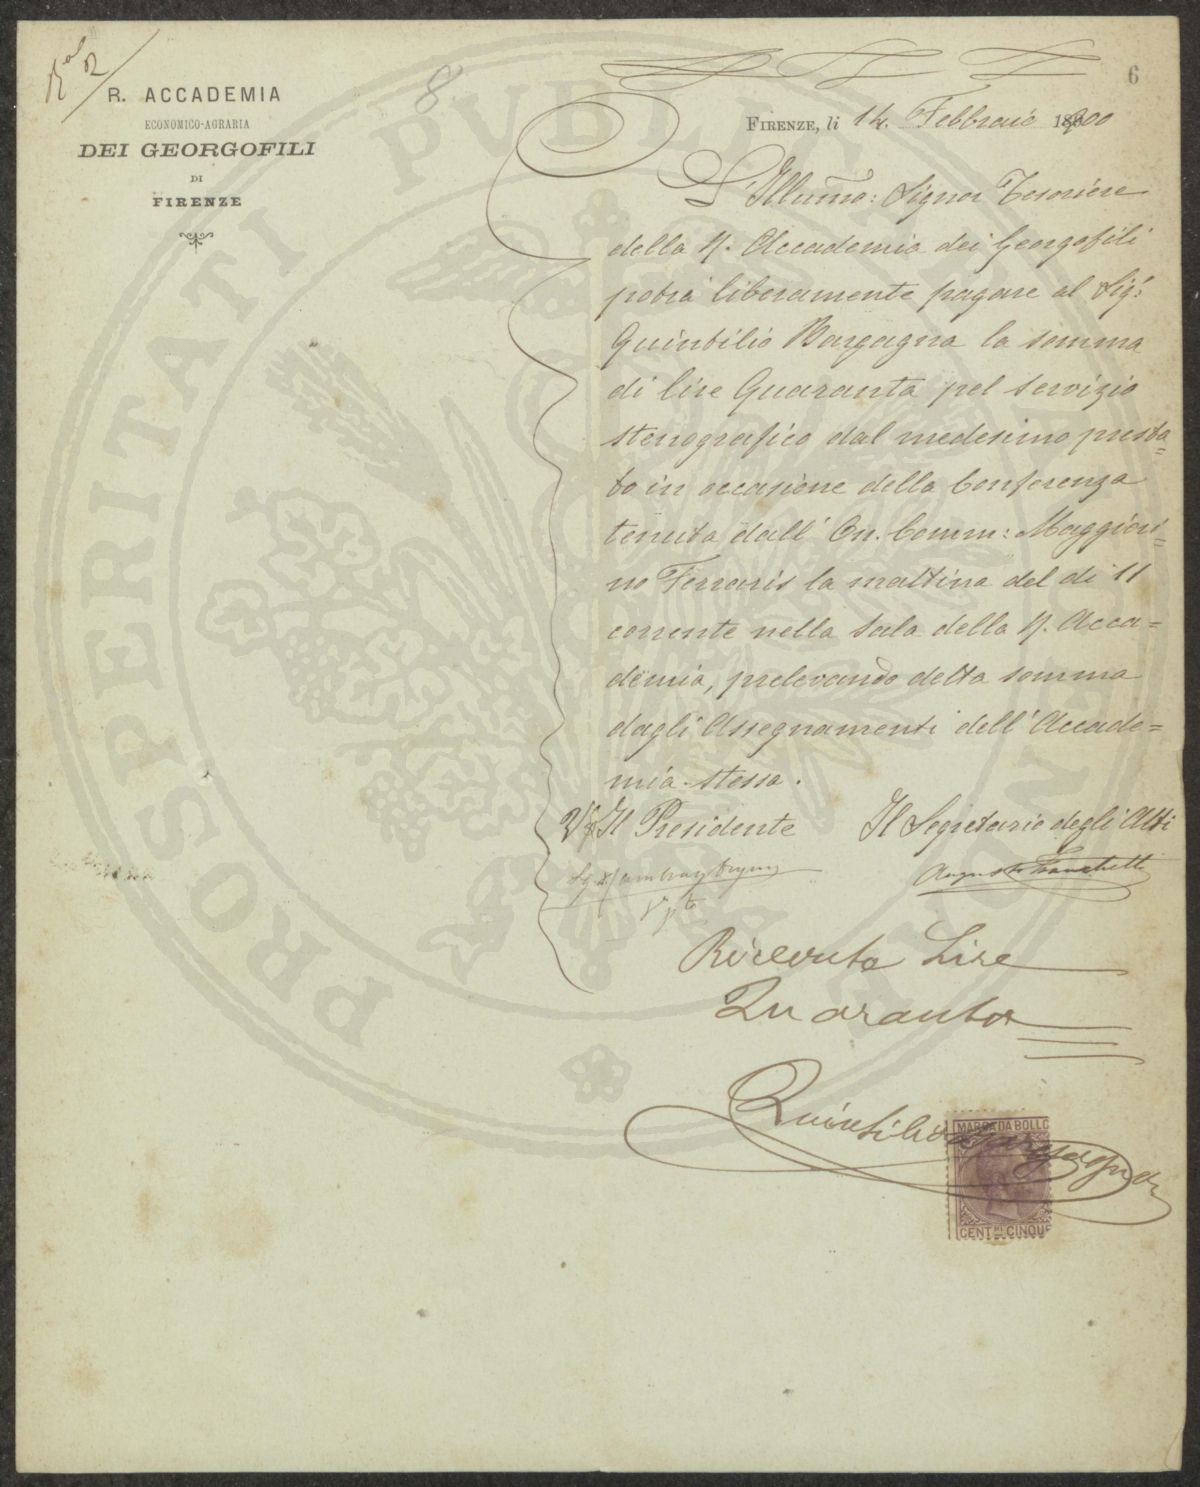 R. ACCADEMIA
ECONOMICO-AGRARIA
DEI GEORGOFILI
DI
FIRENZE
8
6
FIRENZE, li 14. Febbraio 1900
L'Illumo: Signor Tesoriere
della R. Accademia dei Georgofili
potrà liberamente pagare al Sigr:
Quintilio Bargagna la somma
di lire Quaranta pel servizio
stenografico dal medesimo presta=
to in occasione della Conferenza
tenuta dall' On. Comm: Maggiori=
no Ferraris la mattina del di 11
corrente nella Sala della R. Acca=
demia, prelevando detta somma
dagli Assegnamenti dell' Accade=
mia stessa.
V° Il Presidente
Il Segretario degli Atti
Augusto Franchetti
Ricevuto Lire
Quaranta
Quintilio Bargagna
MARCA DA BOLLO
CENT.MI CINQUE
PROSPERITATI PUBLICAE